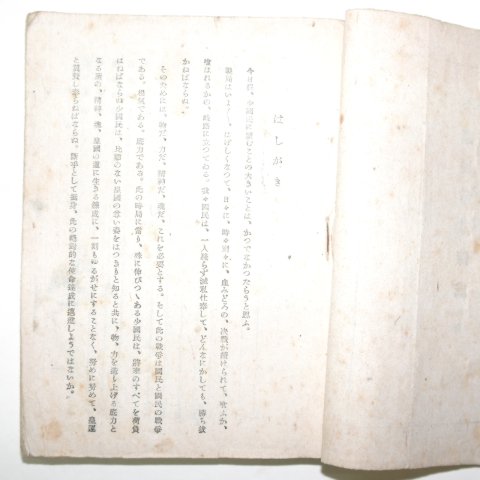 はしがき
今日程、少國民に望むことの大きいことは、かつてなかつたらうと思ふ。
戰局はいよ／＼はげしくなつて、日々に、時々刻々に、血みどろの、決戰が續けられて、喰ふか、
喰はれるかの、岐路に立つてゐる。我々國民は、一人殘らず滅私仕奉して、どんなにかしても、勝ち拔
かねばならぬ。
そのためには、物だ、力だ、精神だ、魂だ、これを必要とする。そして此の戰爭は國民と國民の戰爭
である。意氣である。底力である。此の時局に當り、殊に伸びつゝある少國民は、將來のすべてを荷負
はねばならぬ少國民は、比類のない皇國の尊い姿をはつきりと知ると共に、物、力を造り上げる底力と
なる所の、精神、魂、皇國の道に生きる鍊成に、一刻もゆるがせにすることなく、努めに努めて、皇運
と翼贊し奉らねばならぬ。斷乎として挺身、此の絕對的な使命達成に邁進しようではないか。